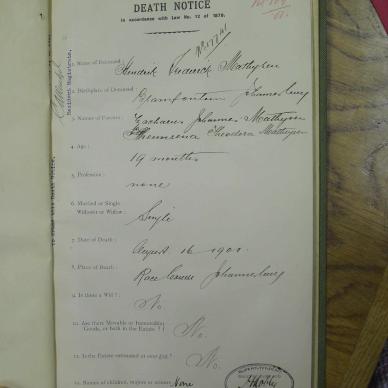 DEATH NOTICE
In accordance with Law No. 12 of 1870.
1. Name of Deceased :
Hendrik Frederick Mathysen
2. Birthplace of Deceased :
Johannesburg
3. Names of Parents :
Zacharias Johannes Mathysen
Theodora Mathysen
4. Age :
19 months
5. Profession :
none
6. Married or Single
Widower or Widow :
Single
7. Date of Death :
August 16 1901
8. Place of Death :
Race Course Johannesburg
9. Is there a Will? :
No
10. Are there Movable or Immovable
Goods, or both in the Estate? :
No.
11. Is the Estate estimated at over £
No.
12. Names of children, majors or minors
None